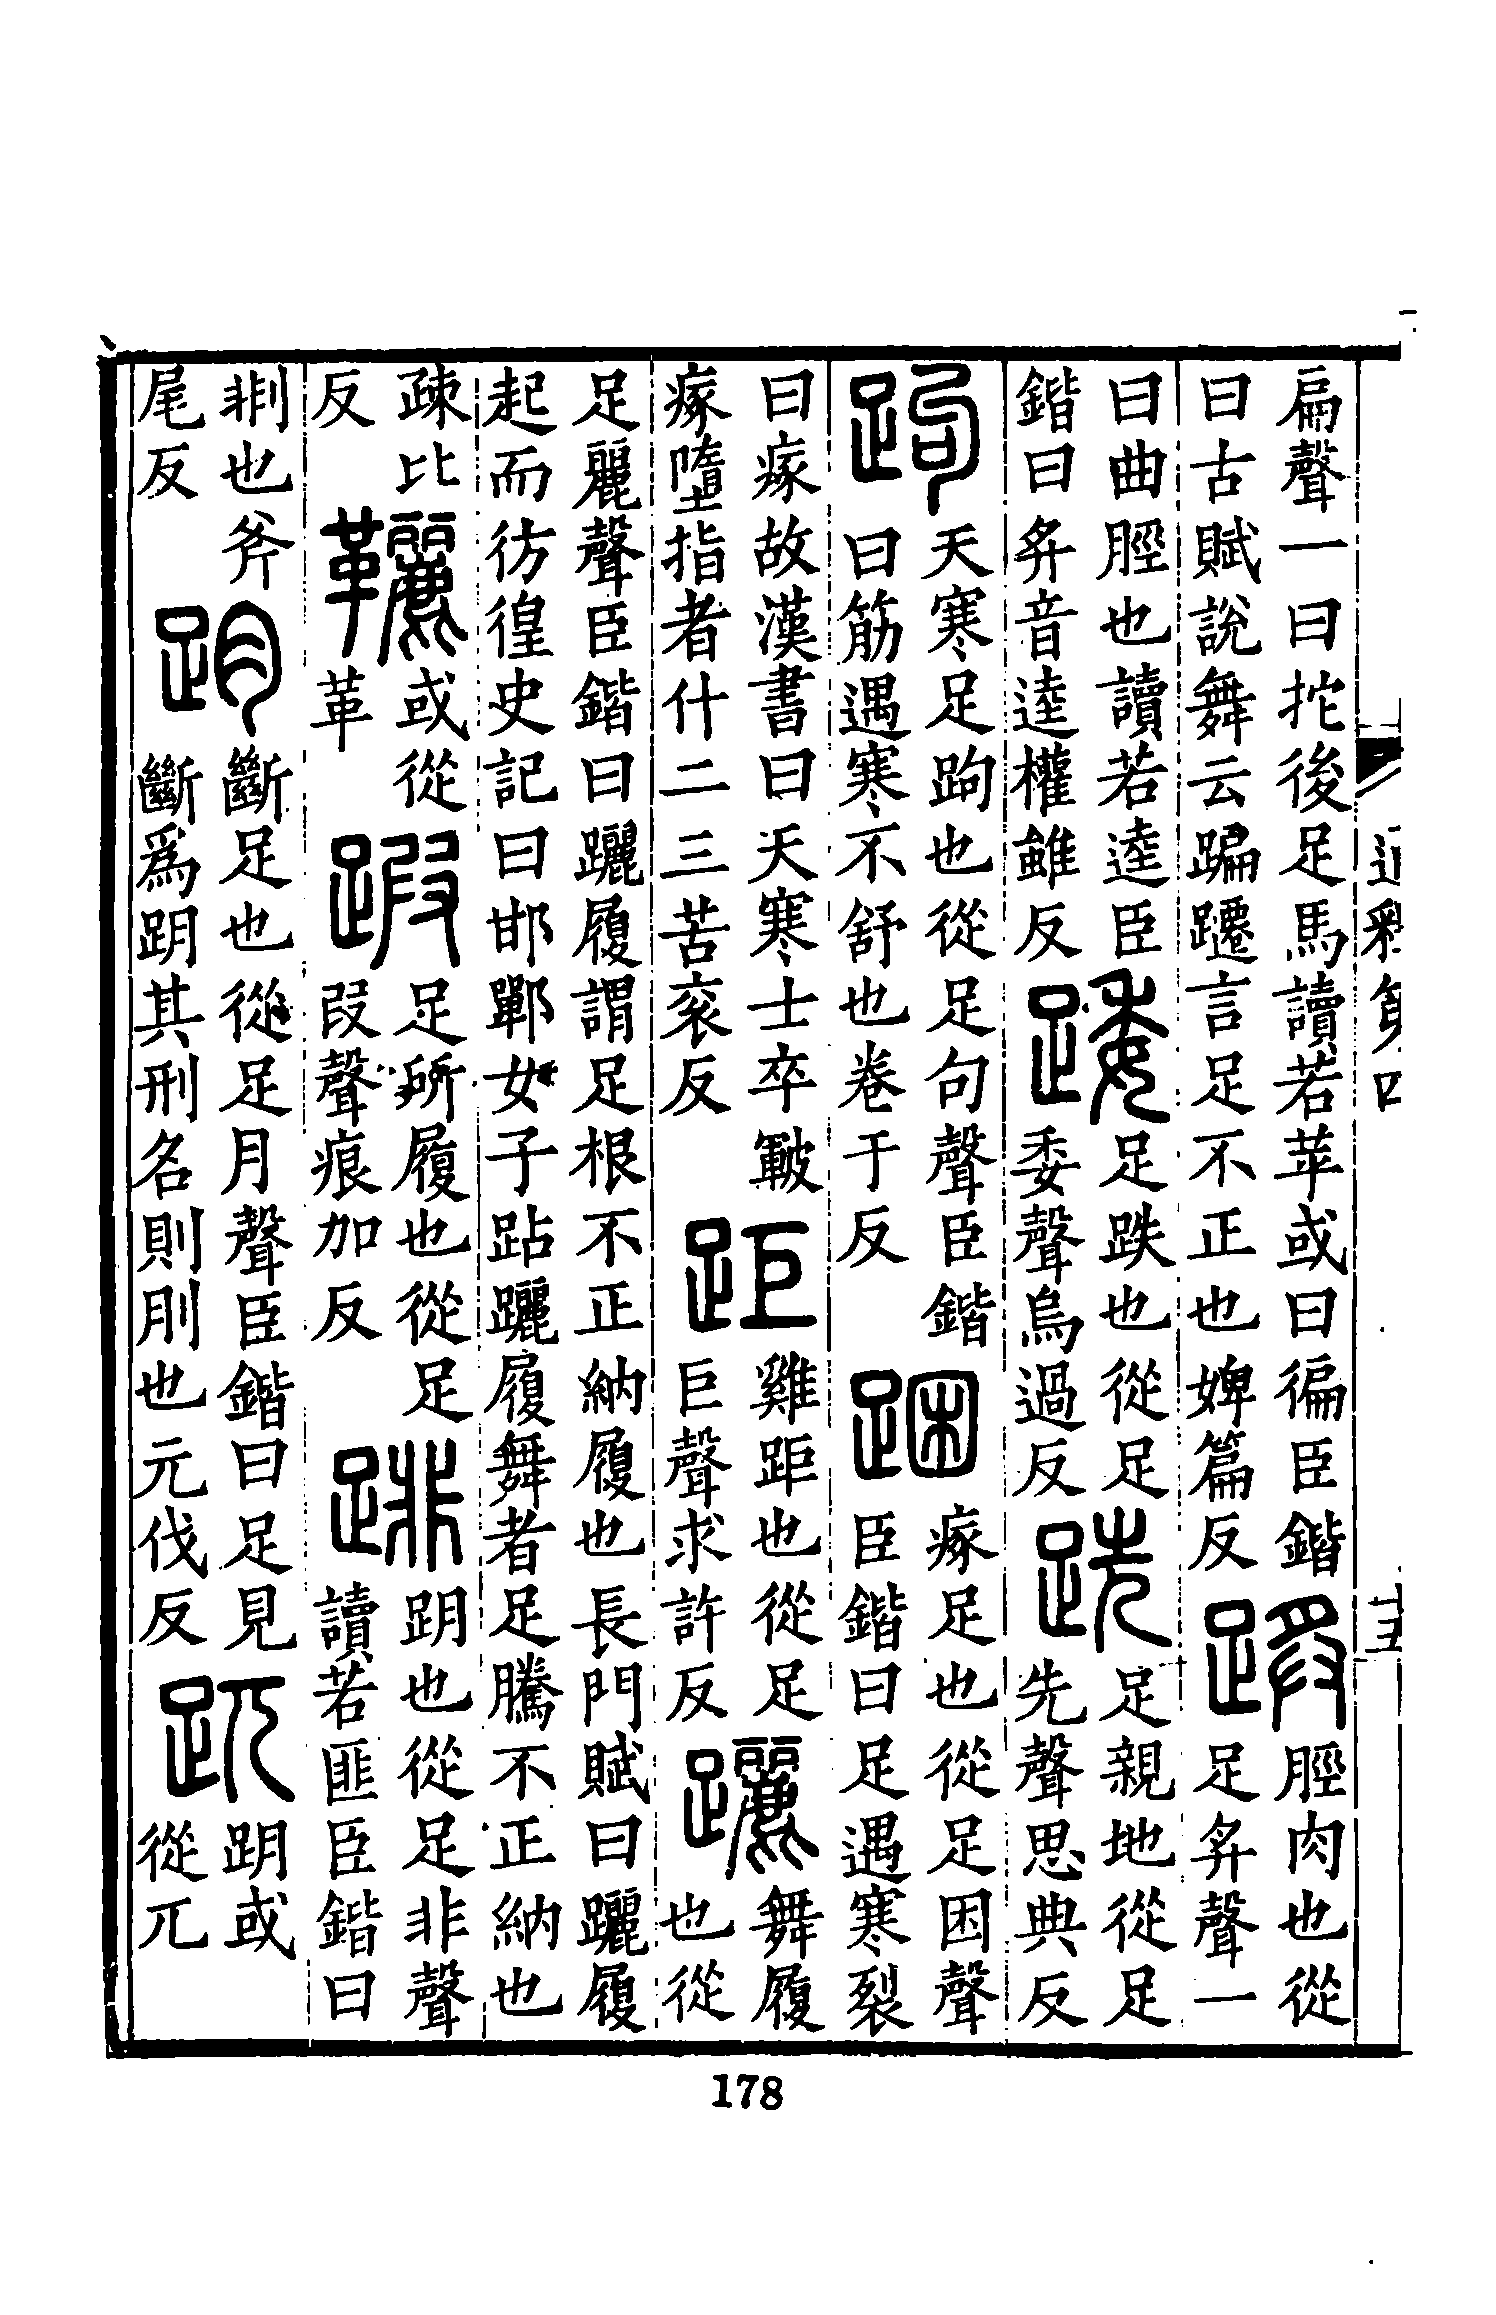 通釋第四
十五
扁聲一曰拕後足馬讀若苹或曰徧臣鍇
曰古賦說舞云蹁躚言足不正也婢篇反
脛肉也從
足𢍏聲一
曰曲脛也讀若逵臣
鍇曰𢍏音逵權雖反
踒
足跌也從足
委聲烏過反
跣
足親地從足
先聲思典反
跔
天寒足跔也從足句聲臣鍇
曰筋遇寒不舒也卷于反
瘃足也從足困聲
臣鍇曰足遇寒裂
曰瘃故漢書曰天寒士卒皸
瘃墮指者什二三苦衮反
距
雞距也從足
巨聲求許反
躧
舞履
也從
足麗聲臣鍇曰躧履謂足根不正納履也長門賦曰躧履
起而彷徨史記曰邯鄲女子跕躧履舞者足騰不正納也
疎比
反
或從
革
⿰足叚
足所履也從足
叚聲痕加反
⿰足非
跀也從足非聲
讀若匪臣鍇曰
剕也斧
尾反
跀
斷足也從足月聲臣鍇曰足見
斷爲跀其刑名則刖也元伐反
⿰足兀
跀或
從兀
178